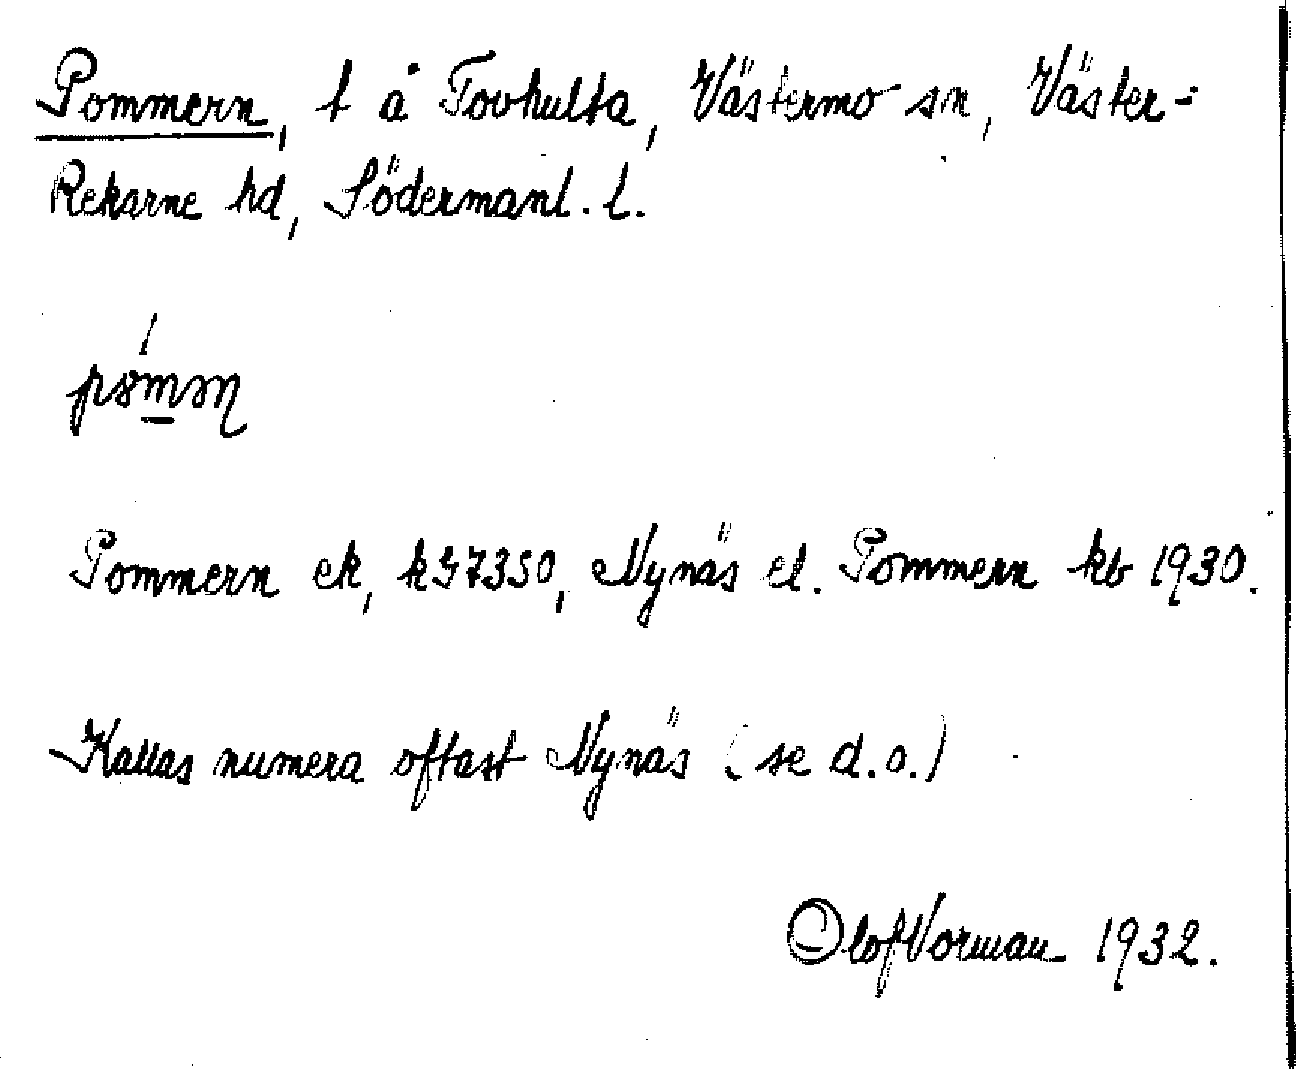 Pommern, t å Tovhulta, Västermo sn, Väster-
Rekarne hd, Södermanl. l.
Pommern ek, k 57350, Nynäs el. Pommern kb 1930.
Kallas numera oftast Nynäs (se d.o.)
Olof Vorman 1932.